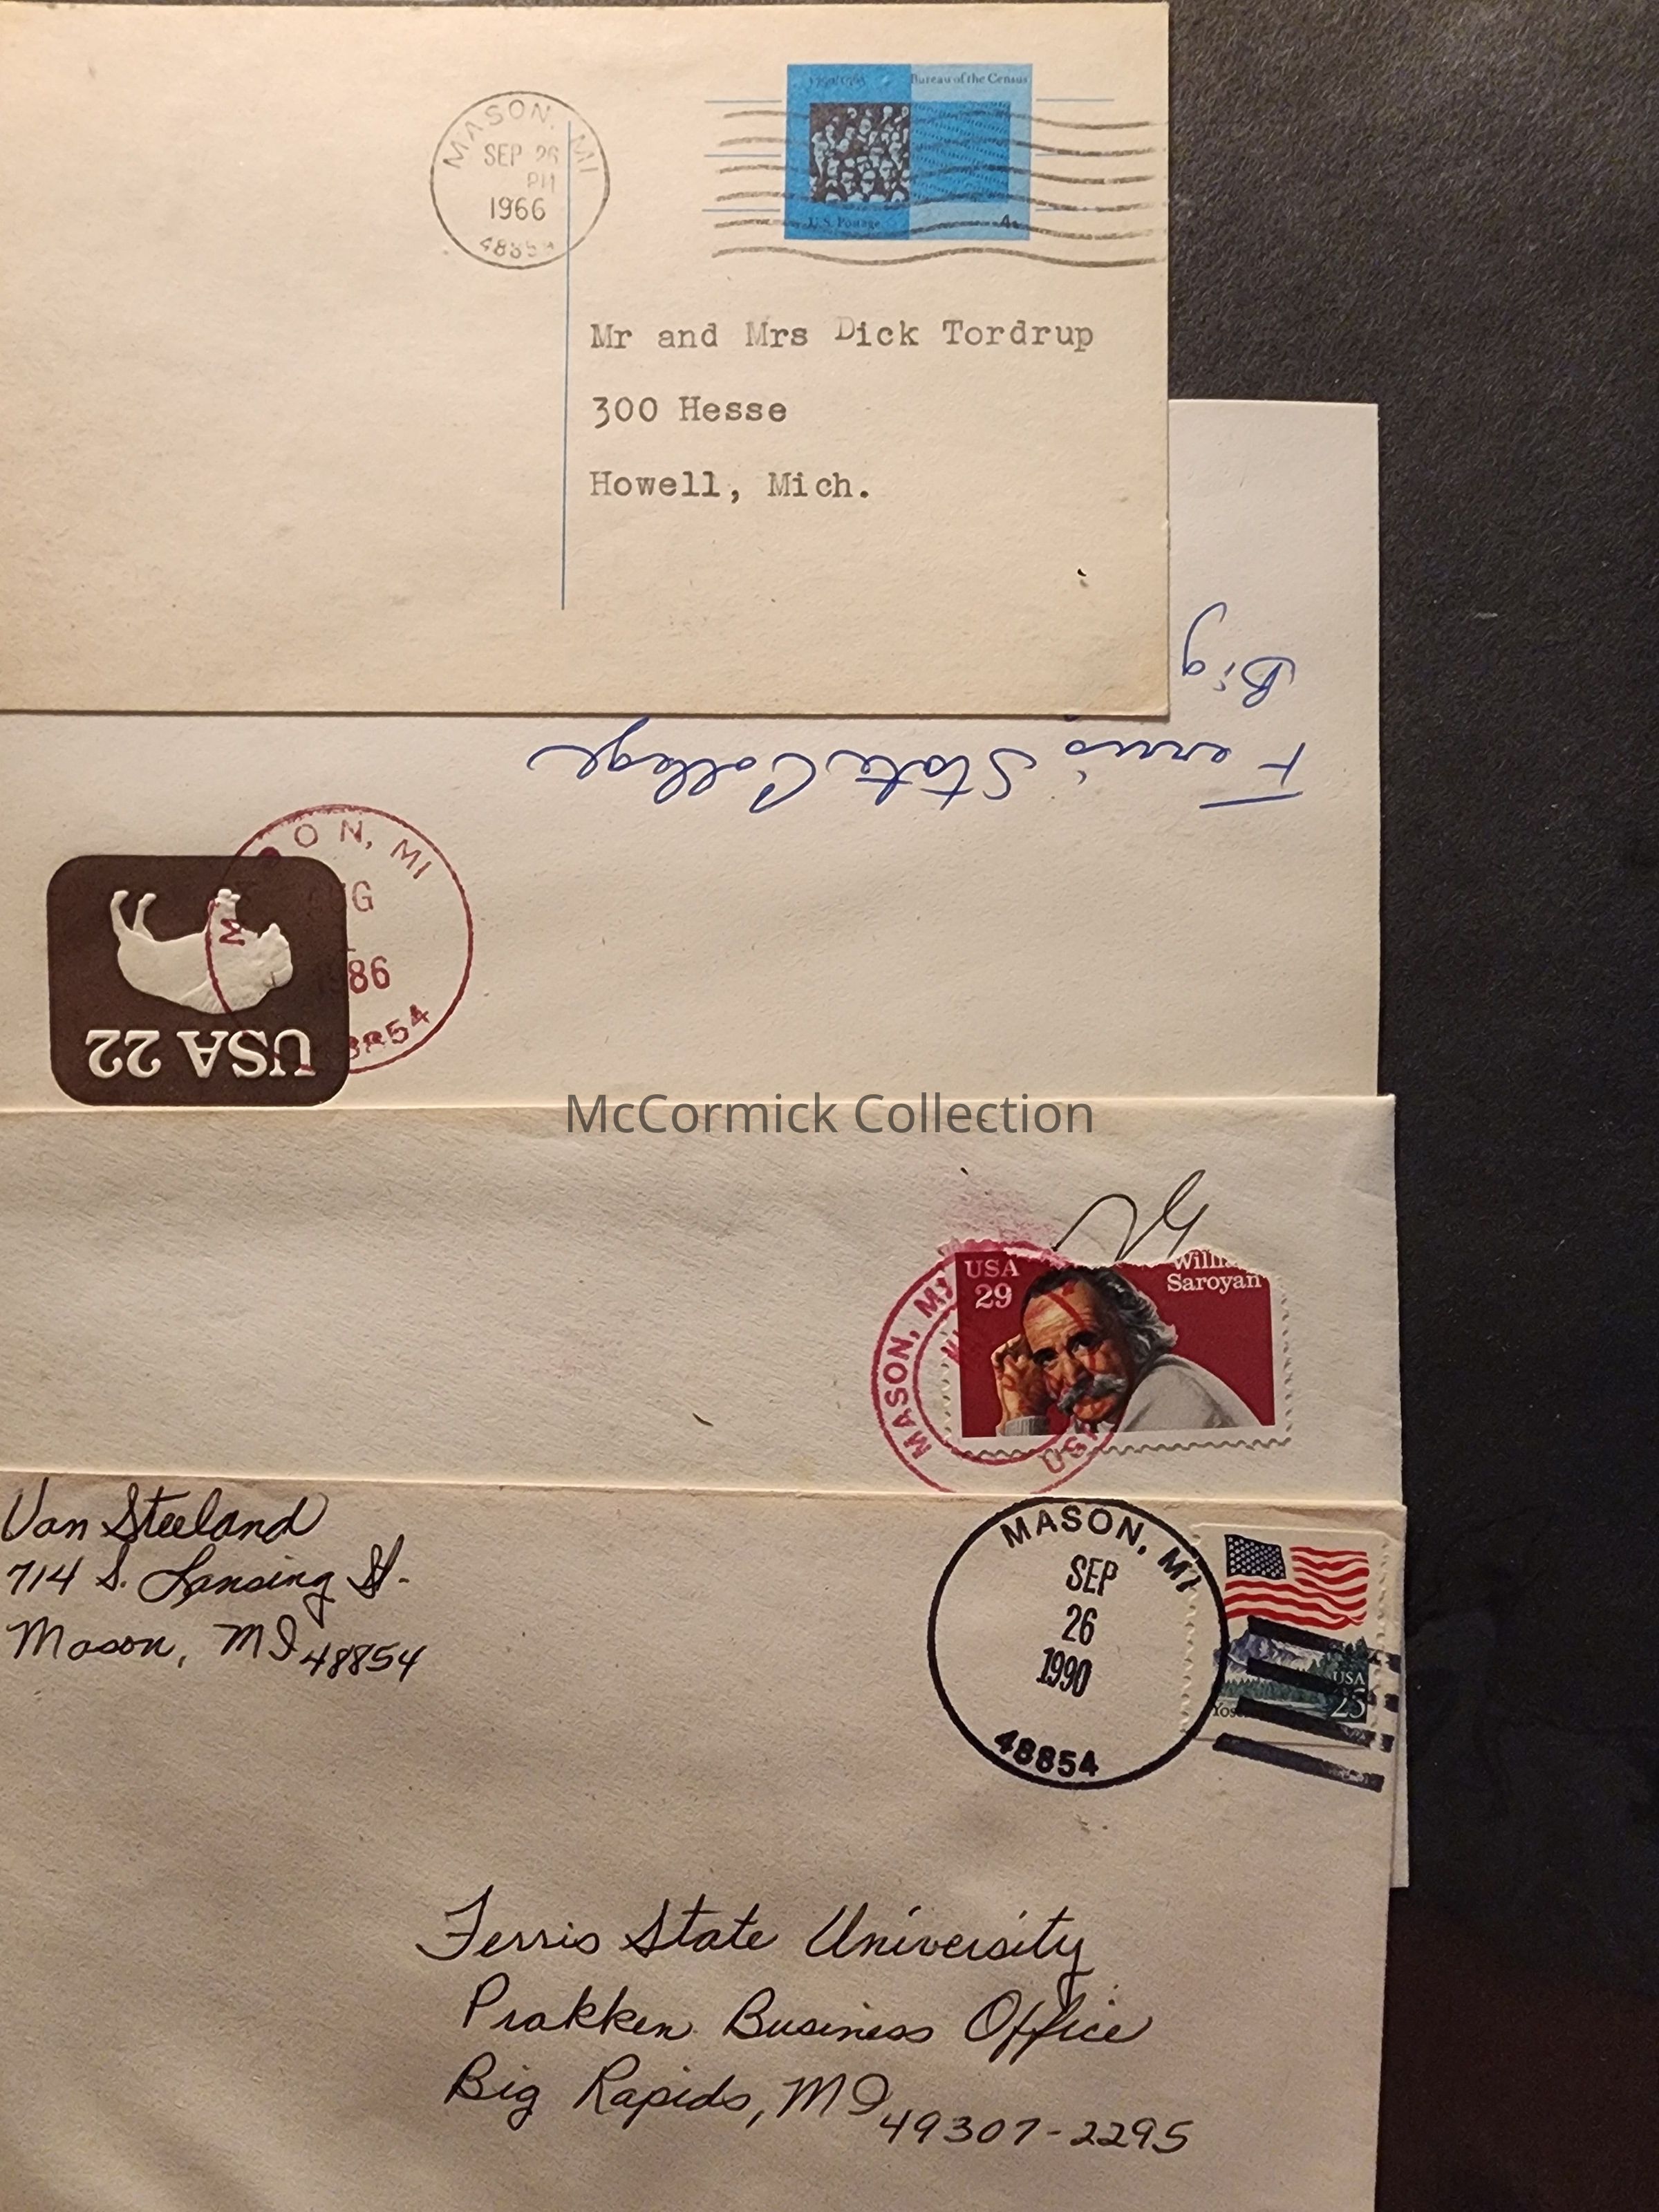 MASON, MI
SEP 26
PM
1966
Bureau of the Census
U.S. Postage
4¢
Mr and Mrs Dick Tordrup
300 Hesse
Howell, Mich.
Big
Ferris State College
ON, MI
86
USA 22
McCormick Collection
USA
29
Saroyan
MASON, MI
Van Steeland
714 S. Lansing St.
Mason, MI 48854
MASON, MI
SEP
26
1990
48854
USA
25
Ferris State University
Prakken Business Office
Big Rapids, MI 49307-2295